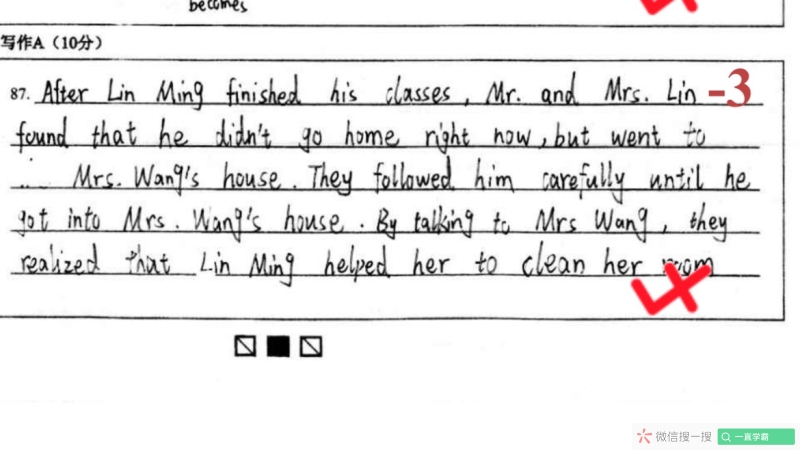 becomes
写作A（10分）
87. After Lin Ming finished his classes, Mr. and Mrs. Lin -3
found that he didn't go home right now, but went to
Mrs. Wang's house. They followed him carefully until he
got into Mrs. Wang's house. By talking to Mrs Wang, they
realized that Lin Ming helped her to clean her room
微信搜一搜 一直学霸